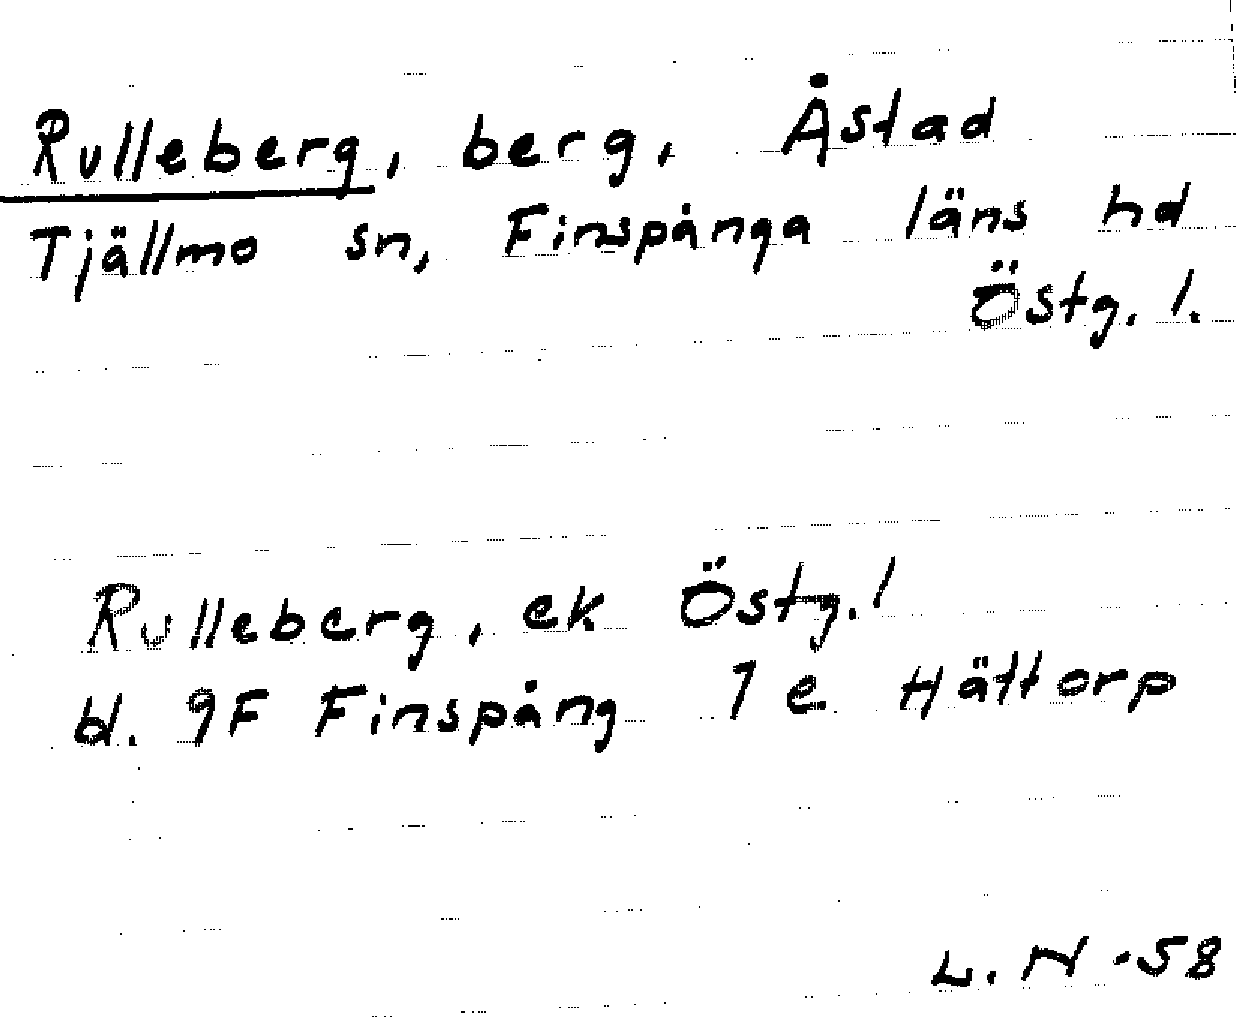 Rulleberg, berg, Åstad
Tjällmo sn, Finspånga läns hd
Östg. l.
Rulleberg, ek Östg. l
bl. 9F Finspång 7 e Hättorp
L. N -58